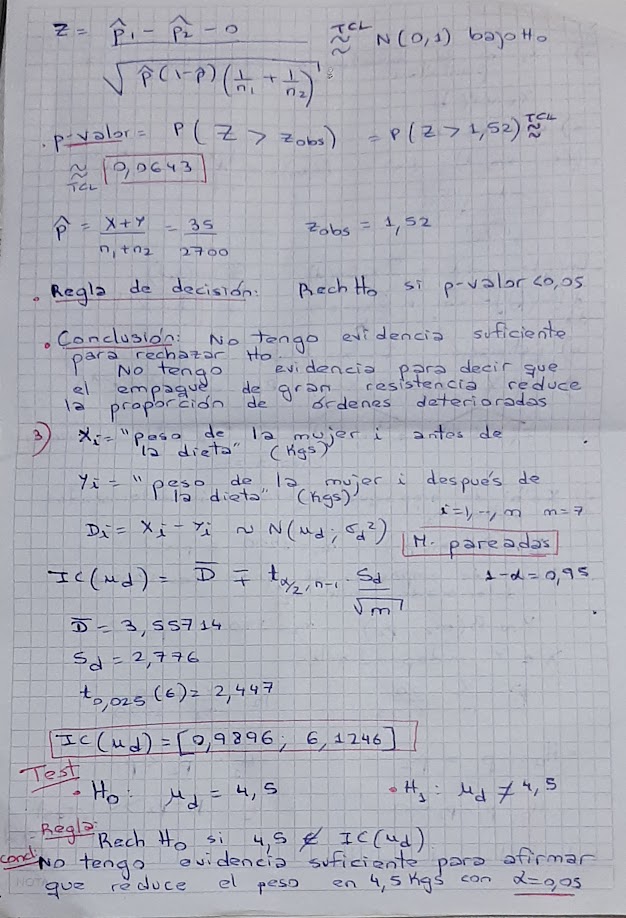 Z = p̂₁ - p̂₂ - 0 / √(p̂(1-p̂)(1/n₁ + 1/n₂)) ≈ TCL N(0,1) bajo Ho
. p-valor = P(Z > zobs) = P(Z > 1,52) ≈ TCL
≈ TCL 0,0643
p̂ = X+Y / n₁+n₂ = 35 / 2700 zobs = 1,52
. Regla de decisión: Rech Ho si p-valor <0,05
. Conclusión: No tengo evidencia suficiente
para rechazar Ho
No tengo evidencia para decir que
el empaque de gran resistencia reduce
la proporción de órdenes deterioradas
3) Xi = "peso de la mujer i antes de
la dieta" (Kgs)
Yi = "peso de la mujer i después de
la dieta" (Kgs)
i=1,..,n n=7
Di = Xi - Yi ~ N(μd; σd²) M. pareadas
IC(μd) = D̄ ∓ tα/2, n-1 . Sd / √n 1-α = 0,95
D̄ = 3,55714
Sd = 2,776
t0,025 (6) = 2,447
IC(μd) = [0,9896; 6,1246]
Test
• Ho: μd = 4,5 • H1: μd ≠ 4,5
Regla: Rech Ho si 4,5 ∉ IC(μd)
Concl: No tengo evidencia suficiente para afirmar
que reduce el peso en 4,5 Kgs con α=0,05